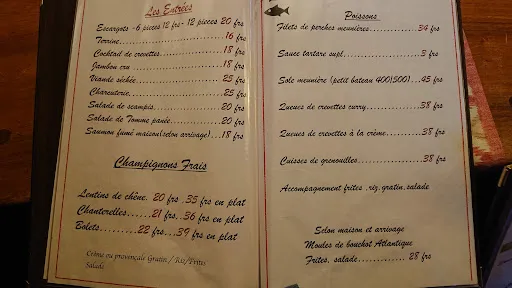 Les Entrées
Escargots -6 pieces 12 frs- 12 pieces 20 frs
Terrine 16 frs
Cocktail de crevettes 18 frs
Jambon cru 18 frs
Viande séchée 25 frs
Charcuterie 25 frs
Salade de scampis 20 frs
Salade de Tomme panée 20 frs
Saumon fumé maison(selon arrivage)...18 frs
Champignons Frais
Lentins de chêne. 20 frs .35 frs en plat
Chanterelles......21 frs..36 frs en plat
Bolets.........22 frs...39 frs en plat
Crème ou provençale Gratin / Riz/Frites
Salade
Poissons
Filets de perches meunières 34 frs
Sauce tartare supl 3 frs
Sole meunière (petit bateau 400/500)...45 frs
Queues de crevettes curry 38 frs
Queues de crevettes à la crème 38 frs
Cuisses de grenouilles 38 frs
Accompagnement frites ,riz, gratin, salade
Selon maison et arrivage
Moules de bouchot Atlantique
Frites, salade............. 28 frs